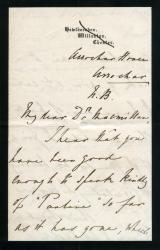 Hawkwooden,
Willaston,
Chester.
Arrochar House
Arrochar
N.B.
My dear Dr. Macmillan
I hear that you
have been good
enough to speak kindly
of "Pauline" so far
as it has gone, which